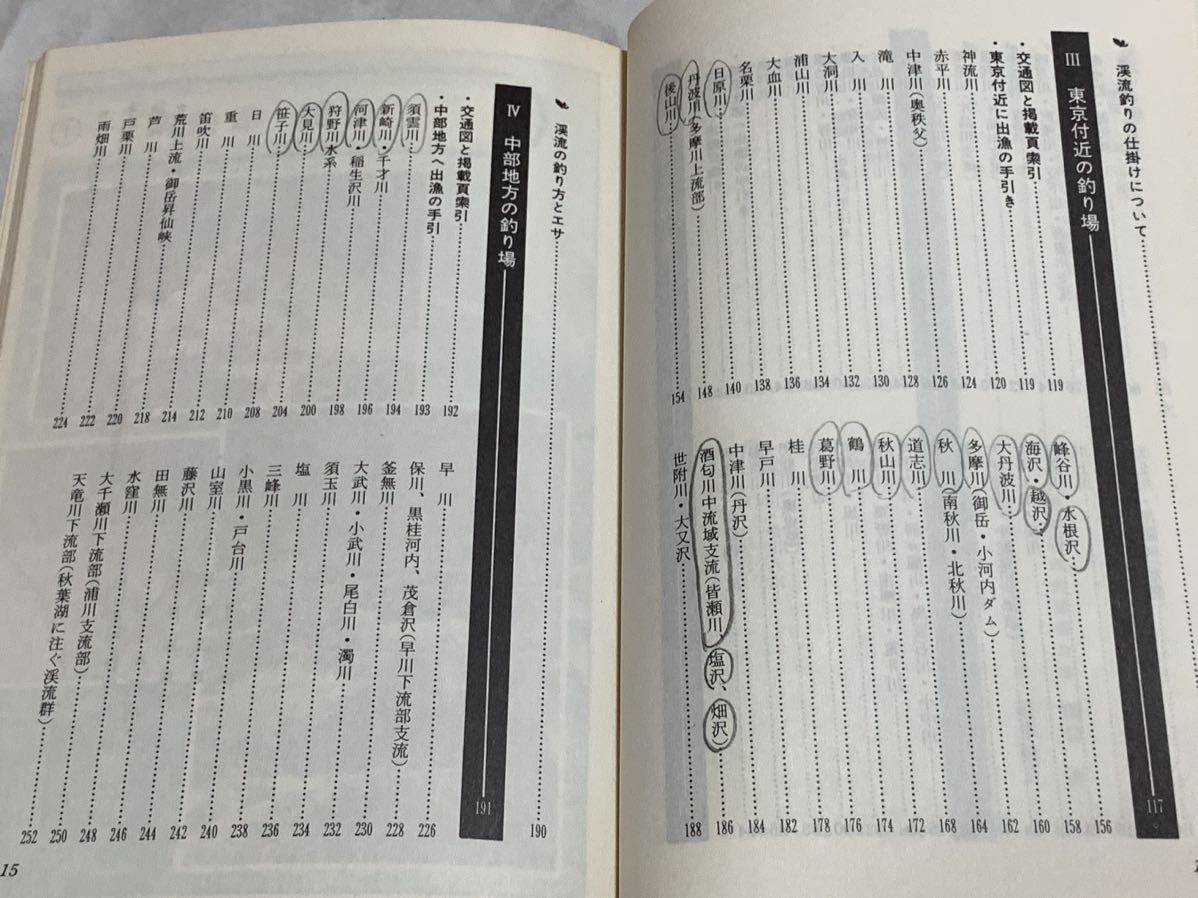 渓流釣りの仕掛けについて
III 東京付近の釣り場 117
・交通図と掲載頁索引 119
・東京付近に出漁の手引き 119
神流川 120
赤平川 124
中津川(奥秩父) 126
滝川 128
入川 130
大洞川 132
浦山川 134
大血川 136
名栗川 138
日原川 140
丹波川(多摩川上流部) 148
後山川 154
峰谷川・水根沢 156
海沢・越沢 158
大丹波川 160
多摩川(御岳・小河内ダム) 162
秋川(南秋川・北秋川) 164
道志川 168
秋山川 172
鶴川 174
葛野川 176
桂川 178
早戸川 182
中津川(丹沢) 184
酒匂川中流域支流(皆瀬川、塩沢、畑沢) 186
世附川・大又沢 188
渓流の釣り方とエサ 190
IV 中部地方の釣り場 191
・交通図と掲載頁索引 192
・中部地方へ出漁の手引 193
須雲川 194
新崎川・千才川 196
河津川・稲生沢川 198
狩野川水系 200
大見川 204
笹子川 208
日川 210
重川 212
笛吹川 214
荒川上流・御岳昇仙峡 218
芦川 220
戸栗川 222
雨畑川 224
早川 226
保川、黒桂河内、茂倉沢(早川下流部支流) 228
釜無川 230
大武川・小武川・尾白川・濁川 232
須玉川 234
塩川 236
三峰川 238
小黒川・戸台川 240
山室川 242
藤沢川 244
田無川 246
水窪川 248
大千瀬川下流部(浦川支流部) 250
天竜川下流部(秋葉湖に注ぐ渓流群) 252
15